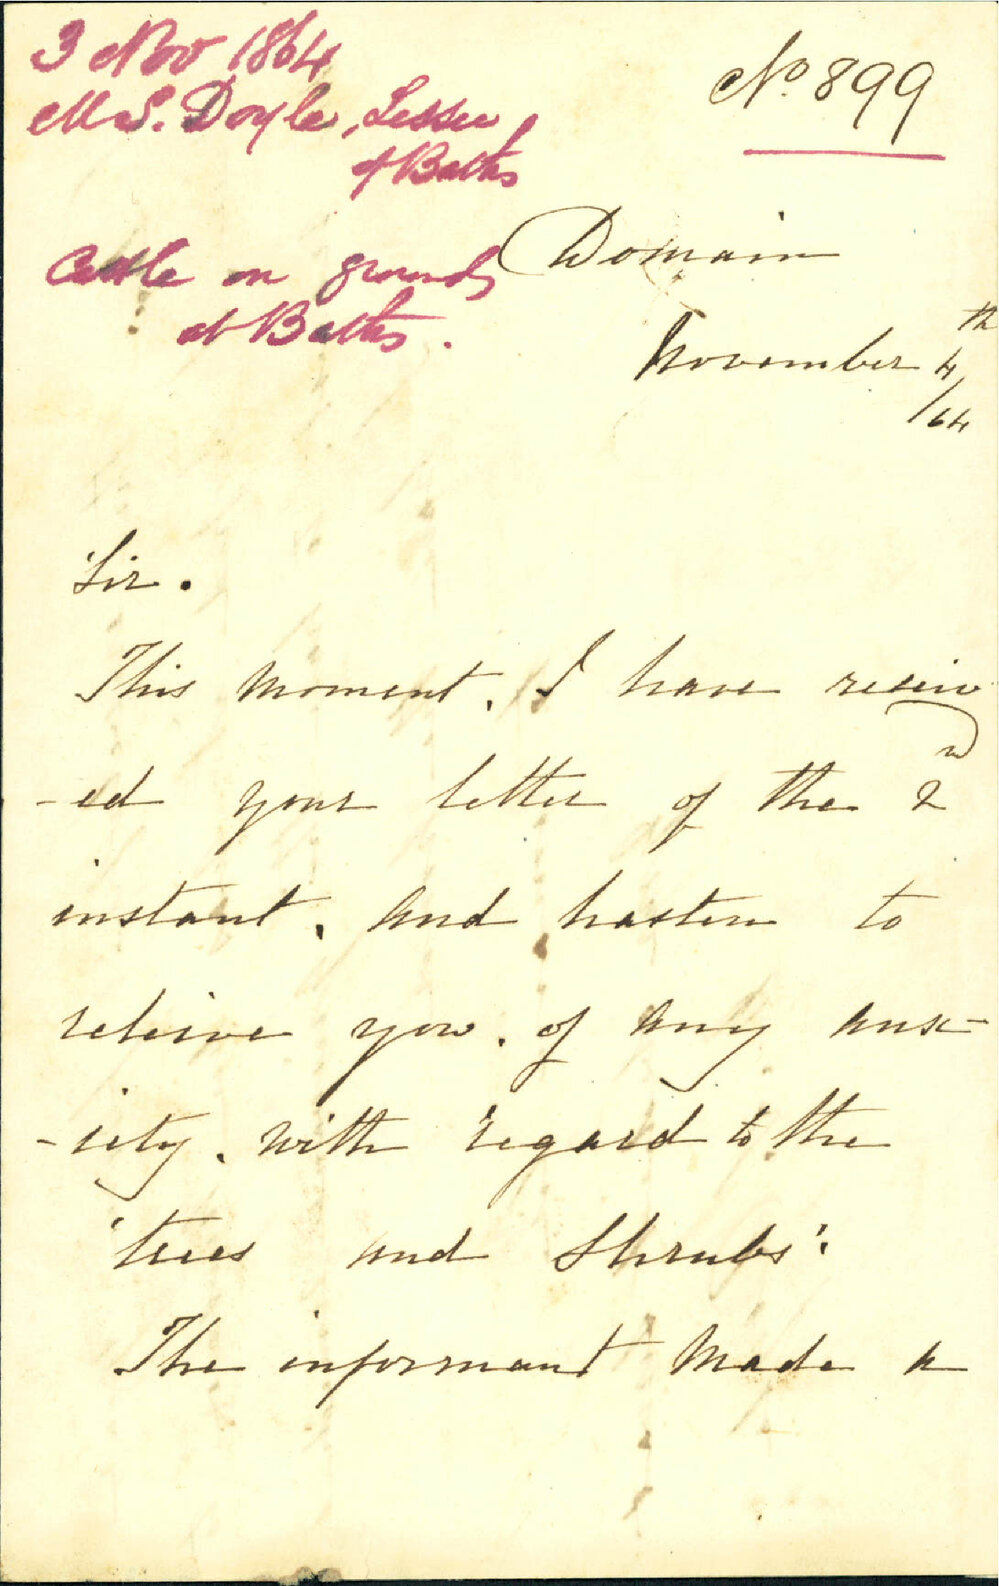 3 Nov 1864
No. 899
Mr S. Doyle, Lessee
of Baths
Cattle on grounds
at Baths.
Domain
November 4th
/64
Sir.
This moment, I have receiv
-ed your letter of the 2nd
instant, and hasten to
releive you, of any anx-
-iety, with regard to the
'trees and Shrubs'.
The informant made a